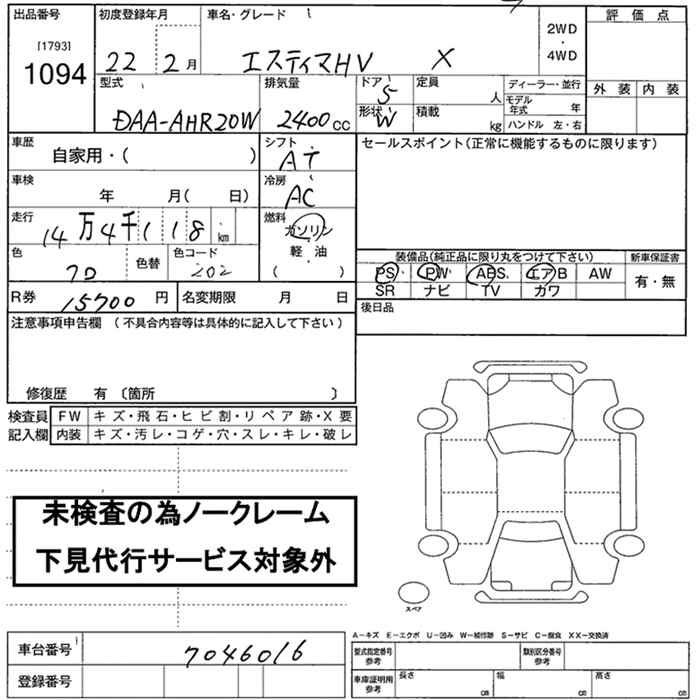 出品番号 初度登録年月 車名・グレード 評価点
[1793]
1094
22 2月 エスティマHV X
2WD
・
4WD
外装 内装
型式 排気量 ドア 5 定員 人 ディーラー・並行
DAA-AHR20W 2400cc
形状 W 積載 kg
モデル年式 年
ハンドル 左・右
車歴 シフト セールスポイント(正常に機能するものに限ります)
自家用・( ) AT
車検 冷房
年 月( 日) AC
走行 燃料
14万4千118km ガソリン
軽・油
( )
色 色替 色コード 202
装備品(純正品に限り丸をつけて下さい) 新車保証書
PS PW ABS エアB AW 有・無
SR ナビ TV ガワ
R券 15700円 名変期限 月 日
後日品
注意事項申告欄 (不具合内容等は具体的に記入して下さい)
修復歴 有 〔箇所 〕
検査員 FW キズ・飛石・ヒビ割・リペア跡・X要
記入欄 内装 キズ・汚レ・コゲ・穴・スレ・キレ・破レ
未検査の為ノークレーム
下見代行サービス対象外
スペア
A-キズ E-エクボ U-凹み W-補修跡 S-サビ C-腐食 XX-交換済
車台番号 7046016
型式指定番号参考 類別区分番号参考
登録番号
車庫証明用参考 長さ cm 幅 cm 高さ cm